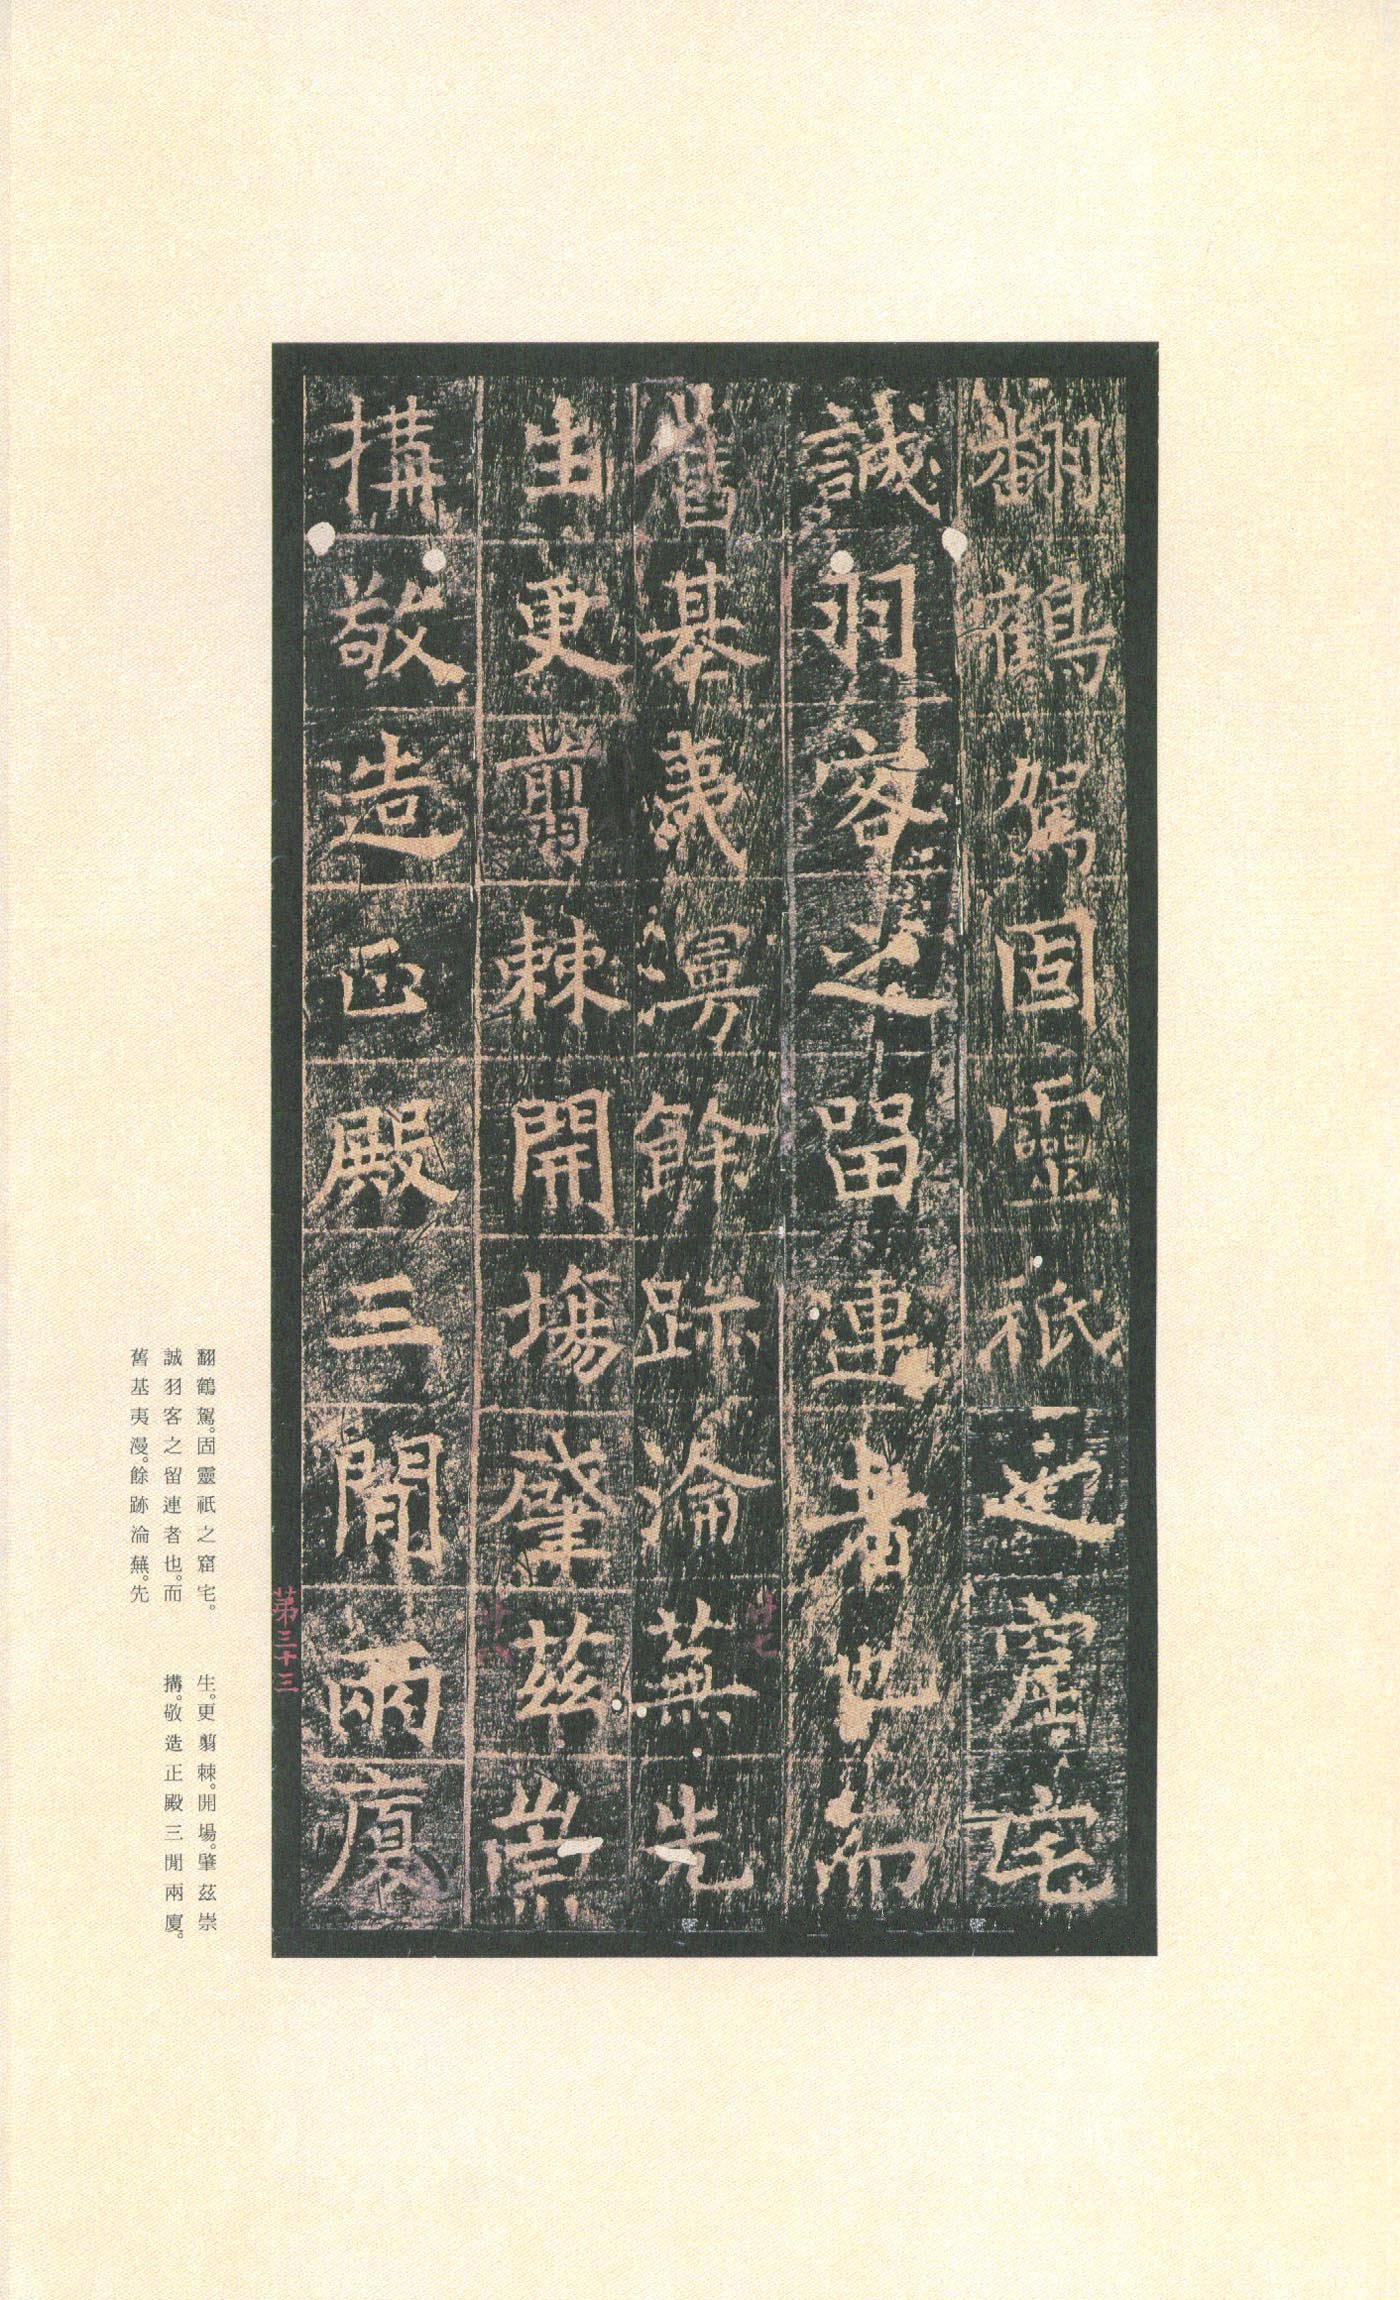 翻鶴駕固靈祇之窟宅
誠羽客之留連者也而
舊基夷漫餘跡淪蕪先
生更翦棘開場肇茲崇
搆敬造正殿三閒兩廈
廿七
廿八
第三十三
翻鶴駕。固靈祇之窟宅。
誠羽客之留連者也。而
舊基夷漫。餘跡淪蕪。先
生。更翦棘。開場。肇茲崇
搆。敬造正殿三閒兩廈。